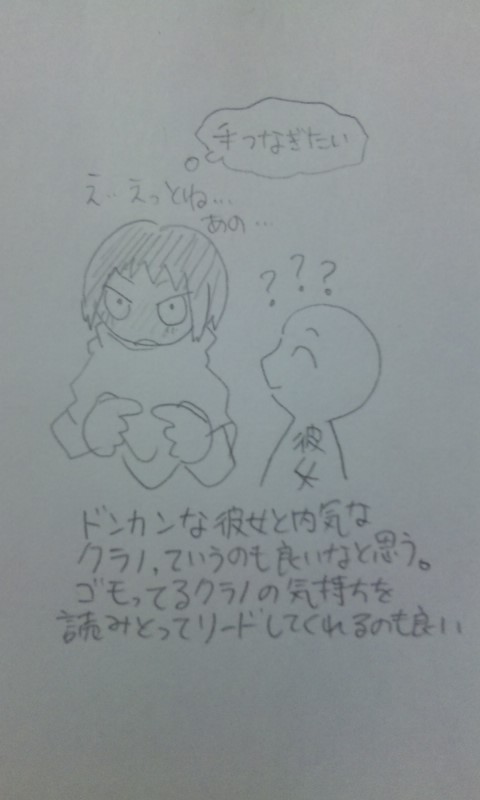 手つなぎたい
え…えっとね…
あの…
???
彼女
ドンカンな彼女と内気な
クラノ,ていうのも良いなと思う。
ゴモってるクラノの気持ちを
読みとってリードしてくれるのも良い